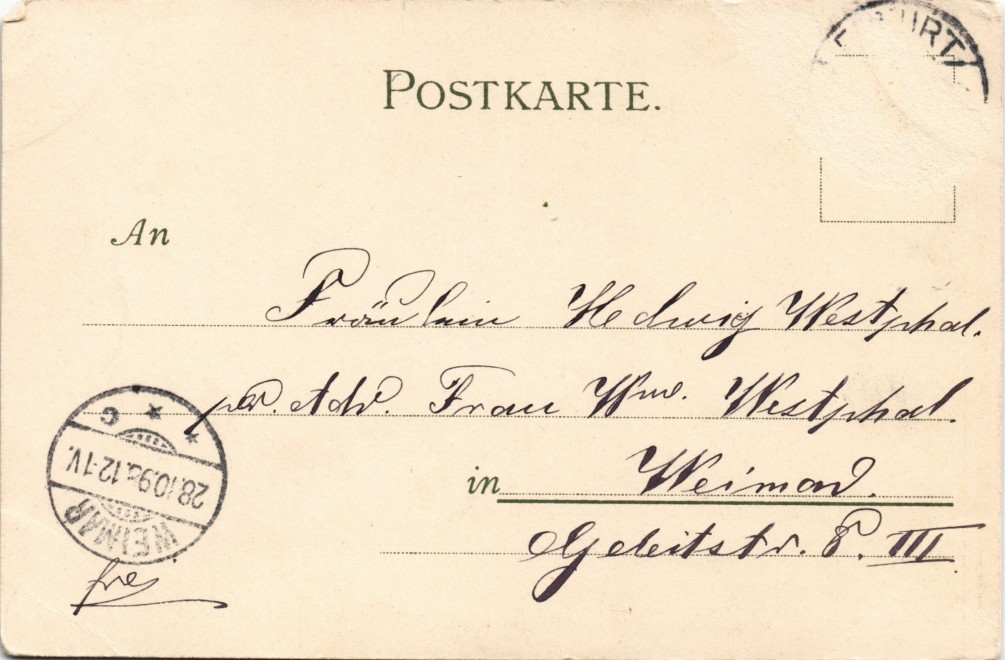 ERFURT
POSTKARTE.
An
Fräulein Hedwig Westphal.
per. Adr. Frau Ww. Westphal.
in Weimar.
Geleitstr. 8. III.
WEIMAR
28.10.9 12-1V.
* * C
frei